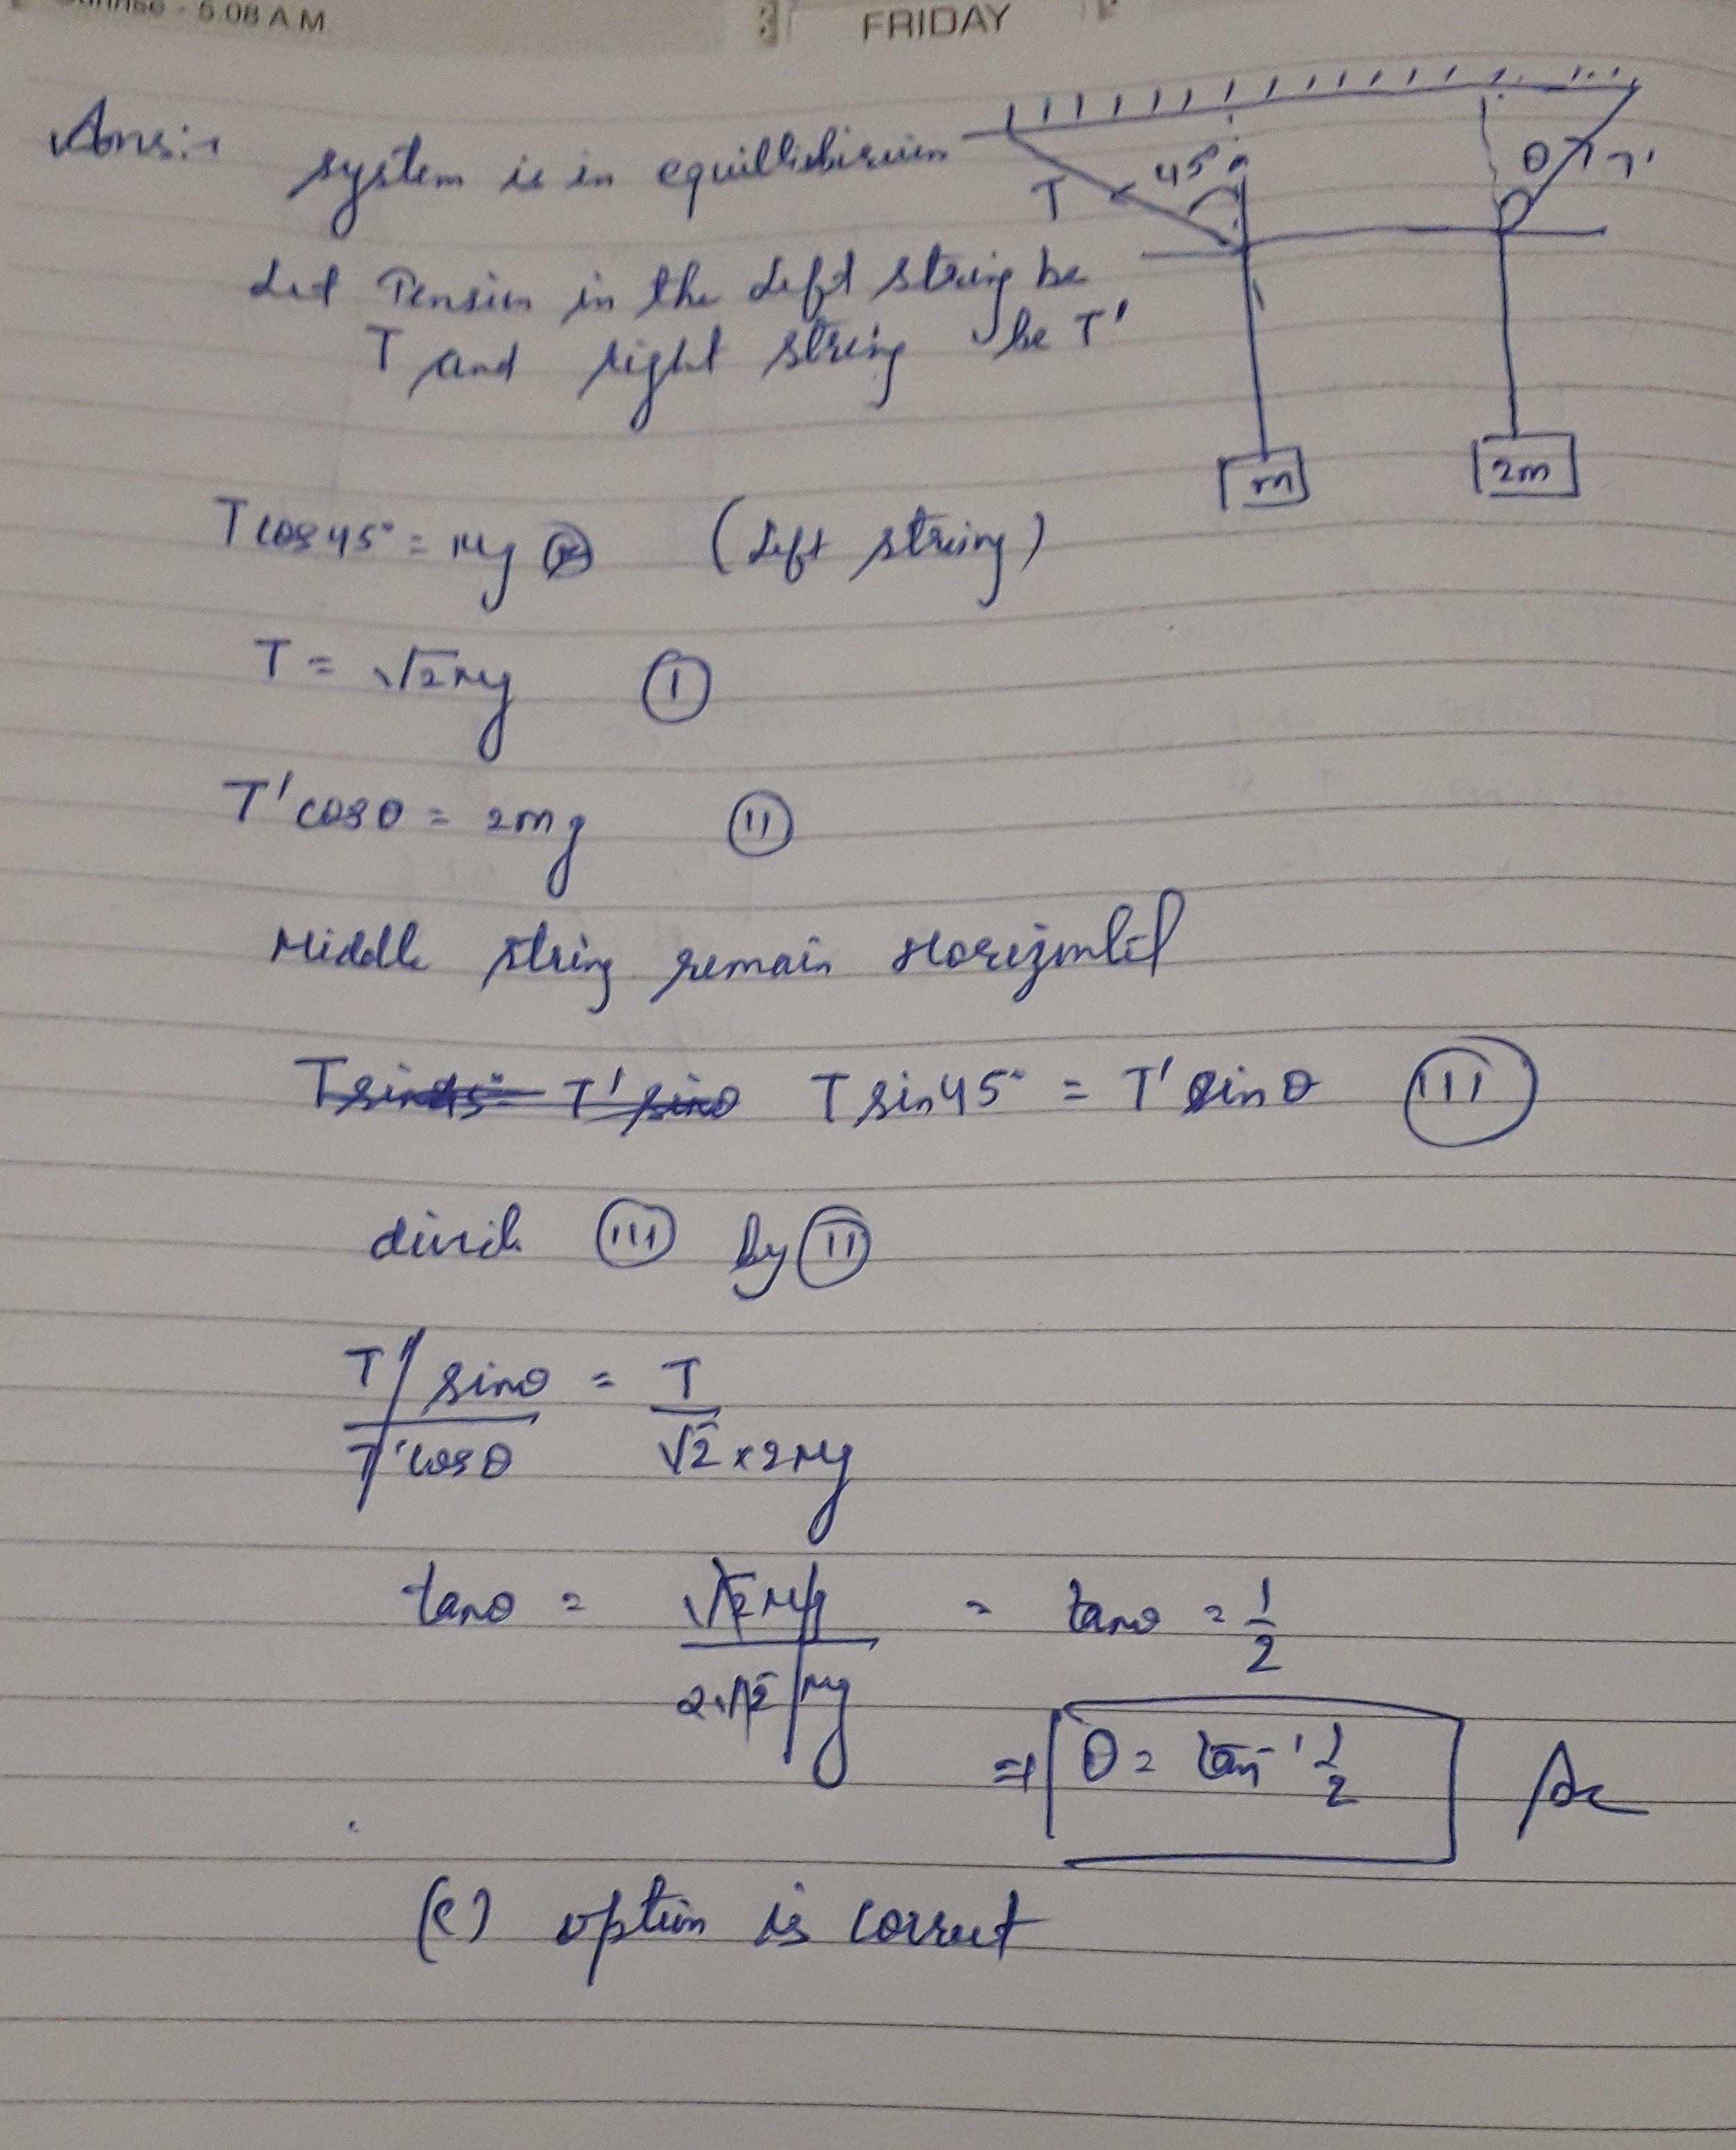 5.08 A M
FRIDAY
Ans:-
system is in equillibirium
Let Tension in the left string be
T and right string be T'
T
45°
θ
T'
m
2m
T cos 45° = Mg (left string)
T = √2 Mg (I)
T' cos θ = 2mg (II)
Middle string remain Horizontal
Tsin45° T' sinθ T sin 45° = T' sin θ (III)
divide (III) by (II)
T' sinθ / T' cos θ = T / √2 × 2Mg
tanθ = √2 Mg / 2√2 Mg = tanθ = 1/2
⇒ θ = tan⁻¹ 1/2
(c) option is correct